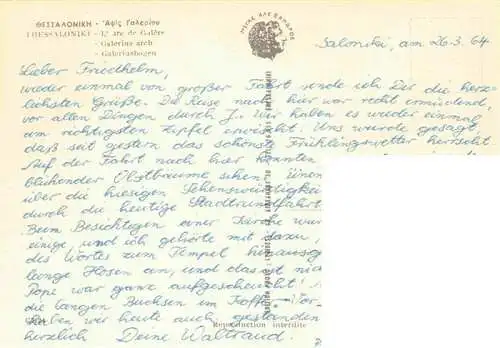 ΘΕΣΣΑΛΟΝΙΚΗ - Ἁψὶς Γαλερίου
THESSALONIKI - L' arc de Galère
- Galerius arch
- Galeriusbogen
ΜΕΓΑΣ ΑΛΕΞΑΝΔΡΟΣ
Saloniki, am 26.3.64
Lieber Friedhelm,
wieder einmal von großer Fahrt sende ich Dir die herz-
lichsten Grüße. Die Reise nach hier war recht ermüdend,
vor allen Dingen durch J. Wir haben es wieder einmal
am richtigsten Zipfel erwischt. Uns wurde gesagt,
daß seit gestern das schönste Frühlingswetter herrscht.
Auf der Fahrt nach hier konnten
blühender Obstbäume sehen.
über die hiesigen Sehenswürdigkeit
durch die heutige Stadtrundfahrt
Beim Besichtigen einer Kirche wur
einige, und ich gehörte mit dazu,
des Wortes zum Tempel hinausge
lange Hosen an, und das ist nic
Pope war ganz aufgescheucht!
die langen Buchsen im Koffer. Vor
haben wir heute auch gestanden
herzlich Deine Waltraud.
Reproduction interdite